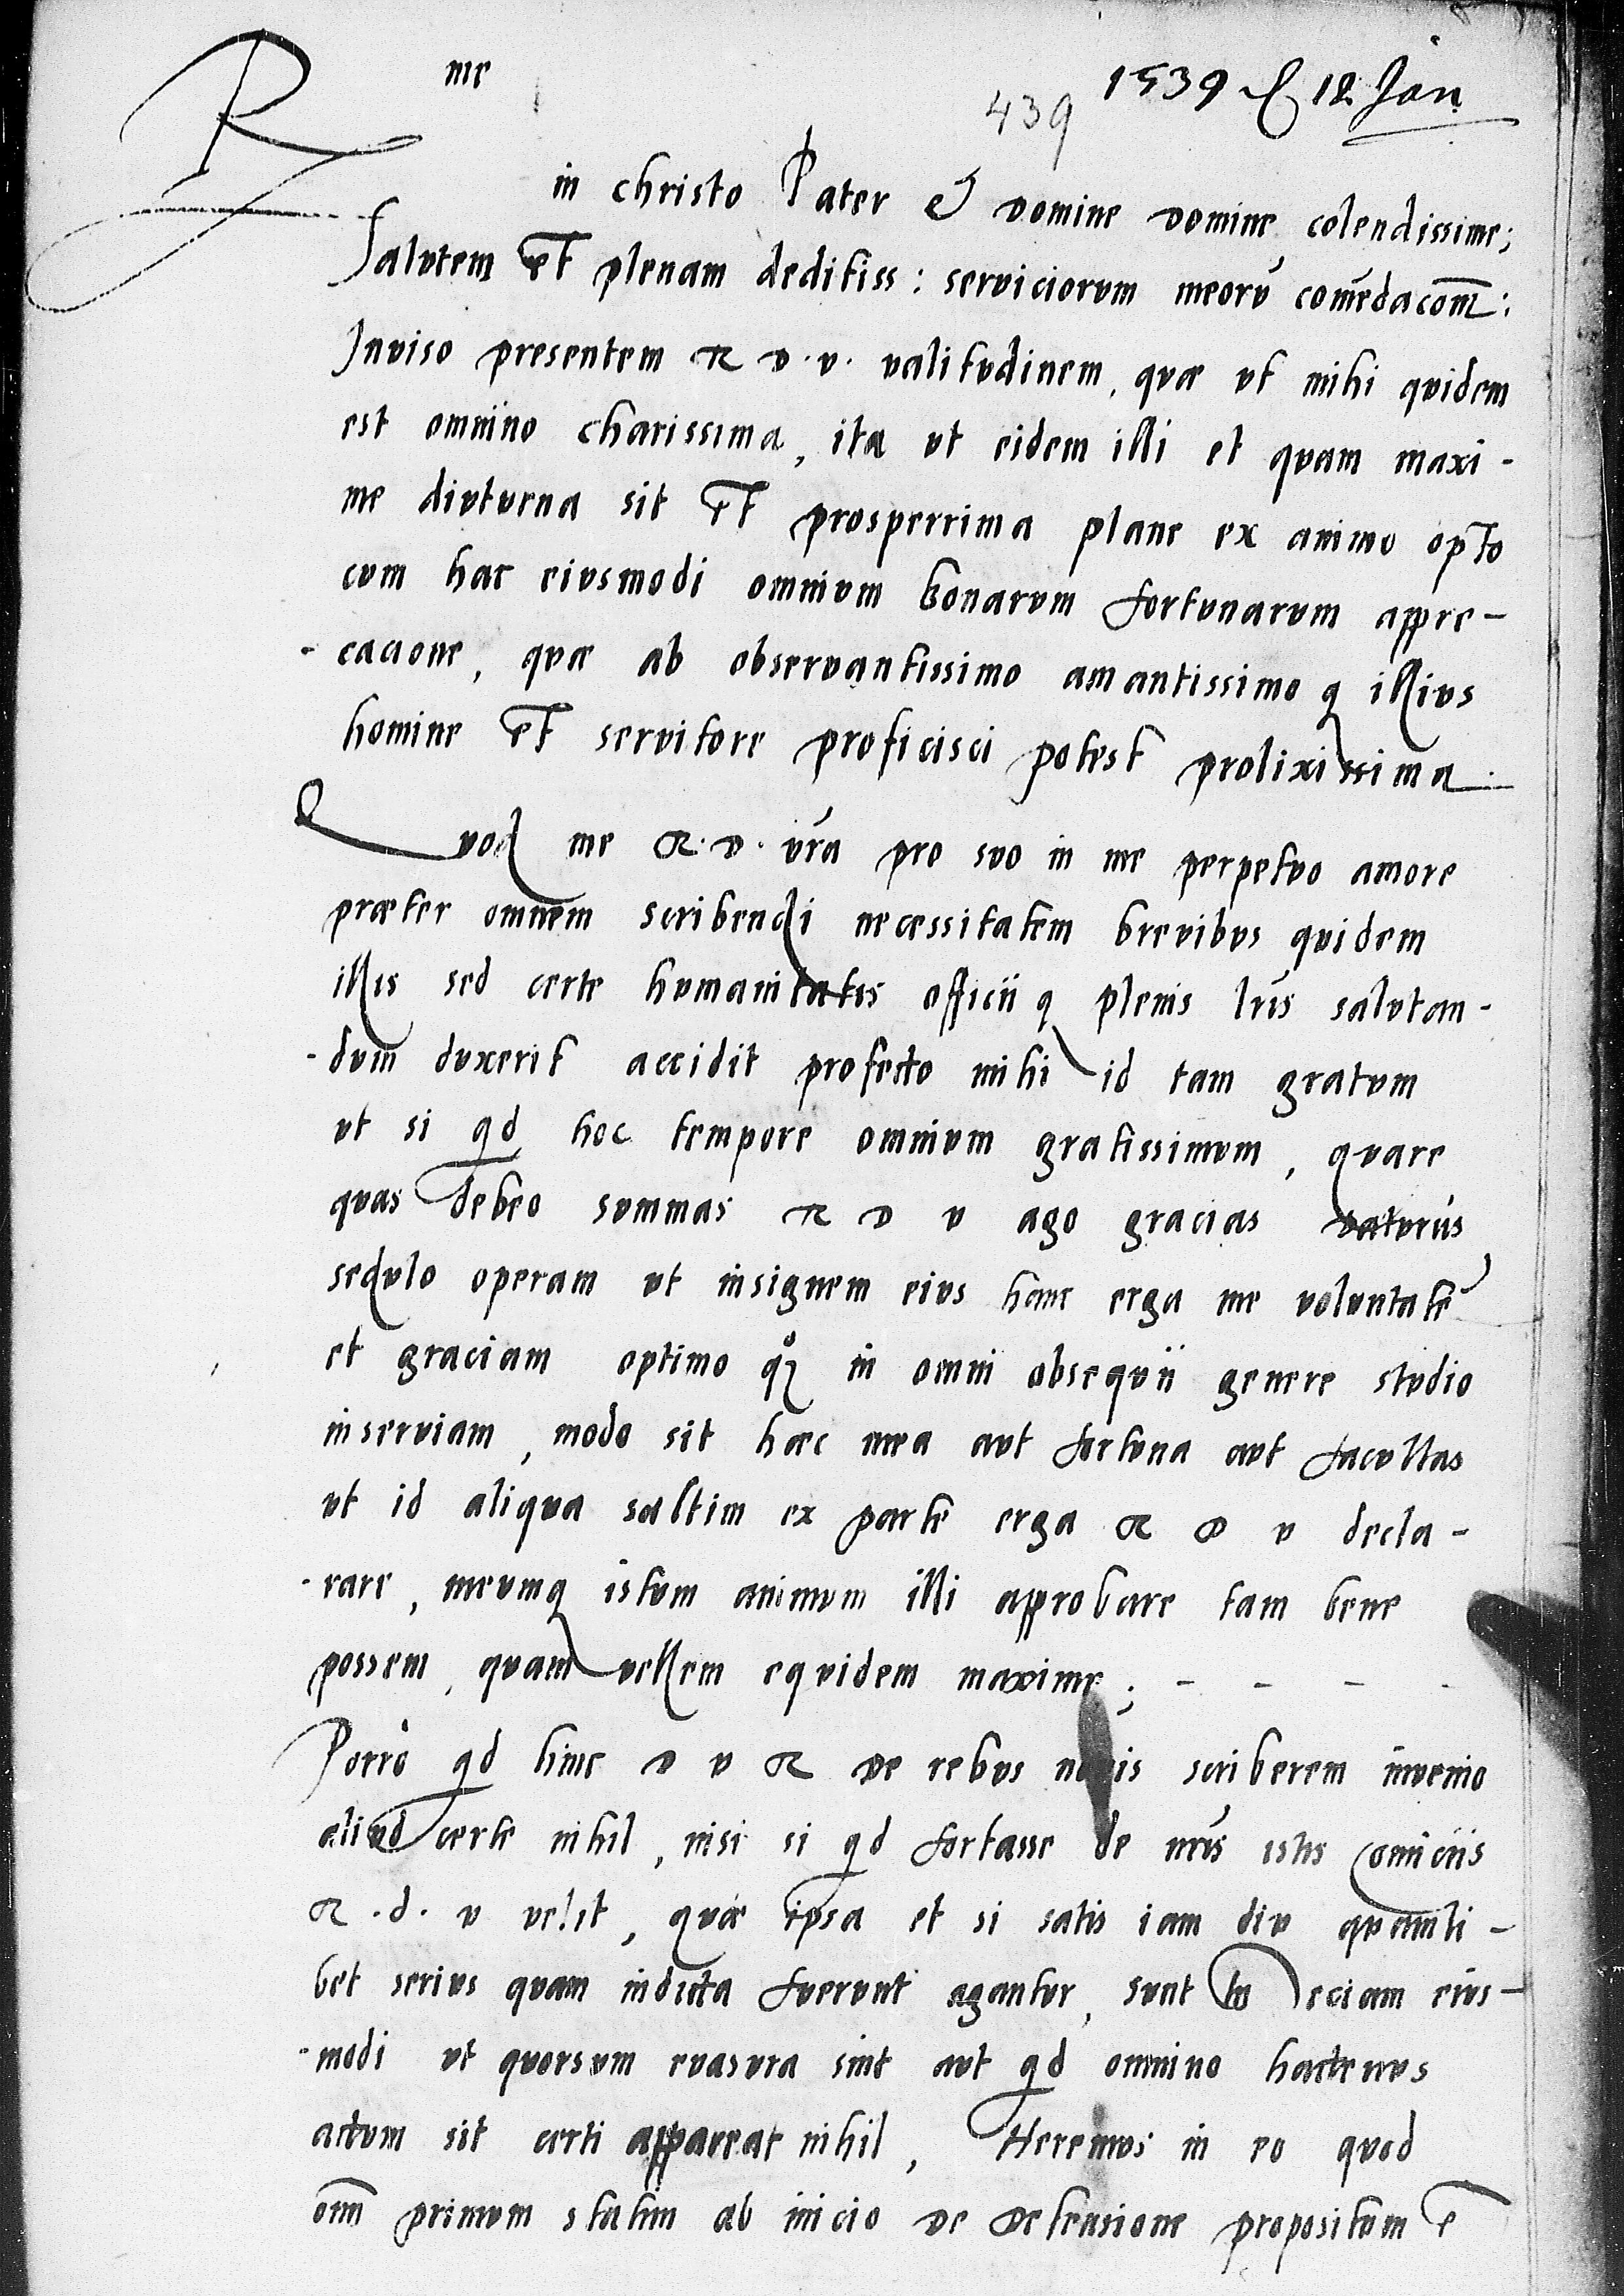 R me
1539 12 Jan
439
in christo Pater et domine domine colendissime;
Salutem et plenam deditiss: seruiciorum meorū comēdacom̄:
Inuiso presentem R D. v. valitudinem, quæ vt mihi quidem
est omnino charissima, ita vt eidem illi et quam maxi-
me diuturna sit et prosperrima plane ex animo opto
cum hac eiusmodi omnium bonarum fortunarum appre-
-cacione, quæ ab obseruantissimo amantissimo q illius
homine et seruitore proficisci potest prolixissima.
Quod me R. D. vra pro suo in me perpetuo amore
præter omnem scribendi necessitatem breuibus quidem
illis sed certe humanitatis officii q plenis lris salutan-
-dum duxerit accidit profecto mihi id tam gratum
vt si qd hoc tempore omnium gratissimum, quare
quas debeo summas R D v ago gracias daturus
sedulo operam ut insignem eius hanc erga me voluntatē
et graciam optimo qȝ in omni obsequii genere studio
inseruiam, modo sit hæc mea aut fortuna aut facultas
vt id aliqua saltim ex parte erga R D v decla-
-rare, meumq istum animum illi approbare tam bene
possem, quam vellem equidem maxime; - - - -
Porro qd hinc D v R de rebus nouis scriberem inuenio
aliud certe nihil, nisi si qd fortasse de nris istis comiciis
R. d. v velit, quæ ipsa et si satis iam diu quamli-
bet serius quam indicta fuerunt agantur, sunt tn eciam eius-
-modi vt quorsum euasura sint aut qd omnino hactenus
actum sit certi appareat nihil, Heremus in eo quod
om̄ primum statim ab inicio de defensione propositum ē